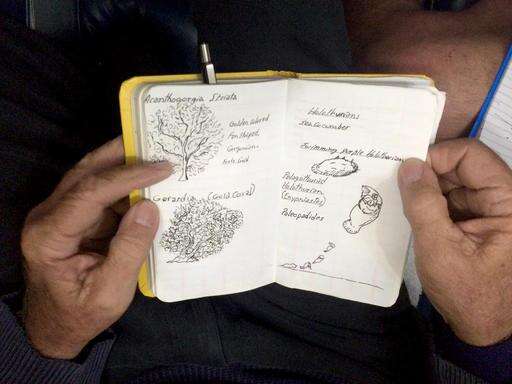 Acanthogorgia Striata
Golden colored
Fan Shaped
Gorgonian
Gerardia (Gold Coral)
Holothurians
Sea Cucumber
Swimming Purple Holothurian
Pelagothuriid
Holothurian
(Enypniastes)